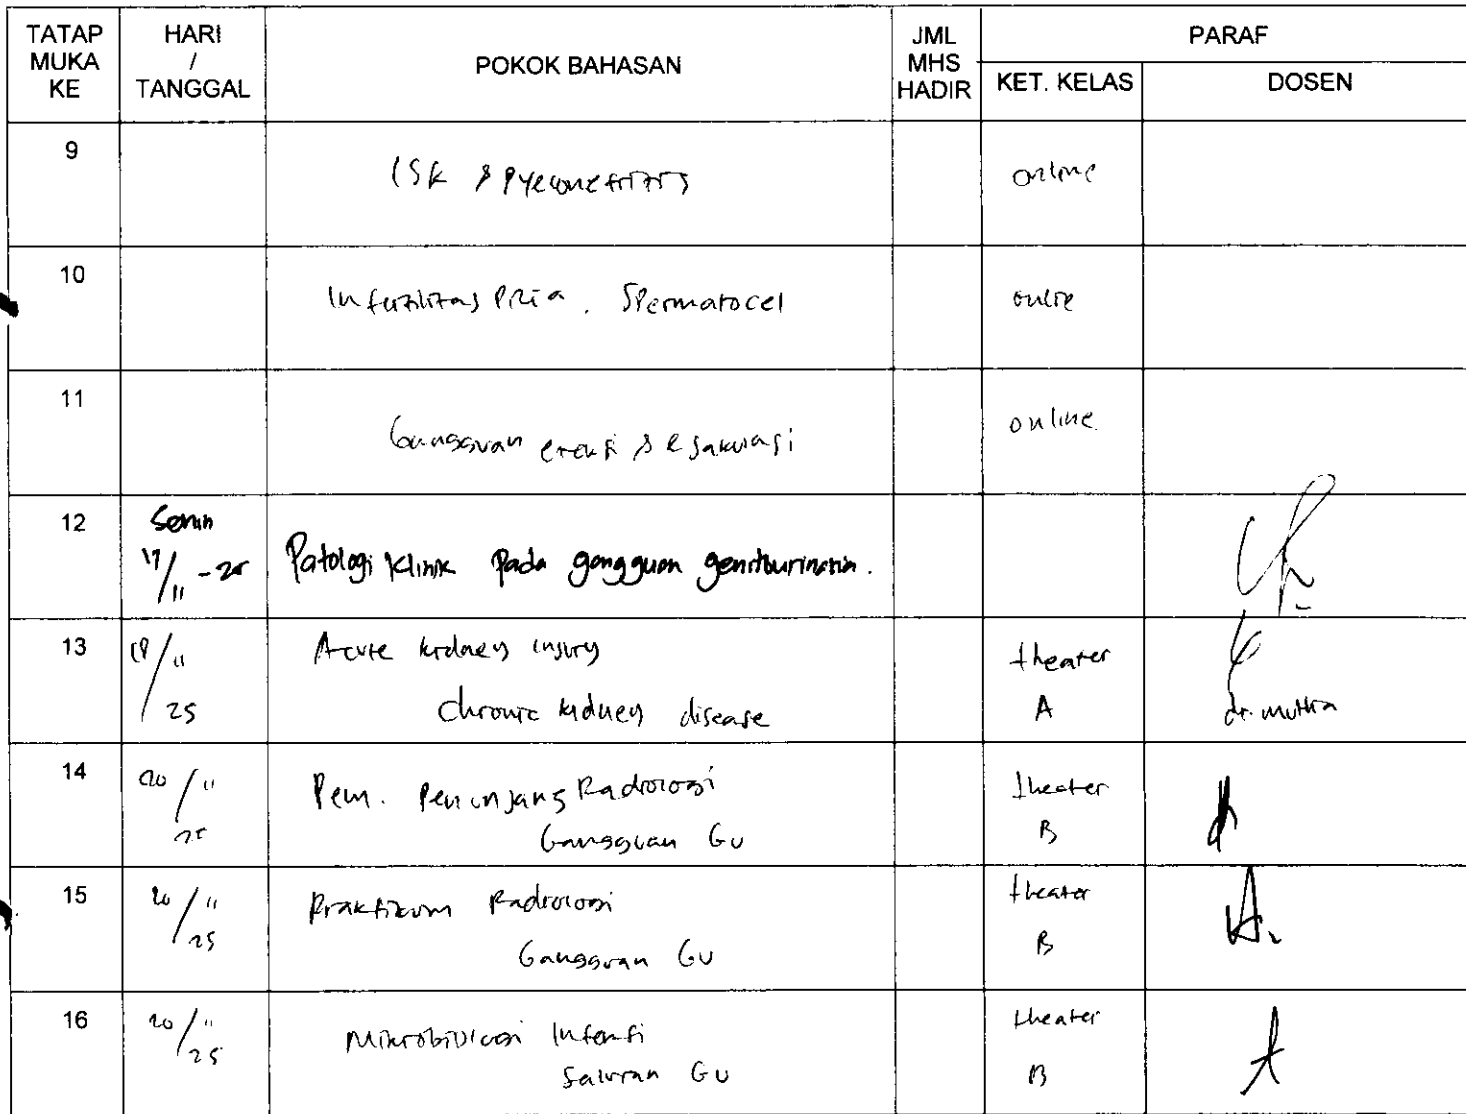 TATAP MUKA KE HARI / TANGGAL POKOK BAHASAN JML MHS HADIR PARAF
KET. KELAS DOSEN
9 ISK & Pyelonefritis online
10 Infertilitas Pria. Spermatocel online
11 Gangguan ereksi & ejakulasi online
12 Senin 17/11-25 Patologi Klinik pada gangguan genitourinaria.
13 18/11 25 Acute kidney injury theater
chronic kidney disease A dr. mutia
14 20/11 25 Pem. Penunjang Radiologi theater
Gangguan GU B
15 20/11 25 Praktikum Radiologi theater
Gangguan GU B
16 20/11 25 Mikrobiologi Infeksi theater
Saluran GU B